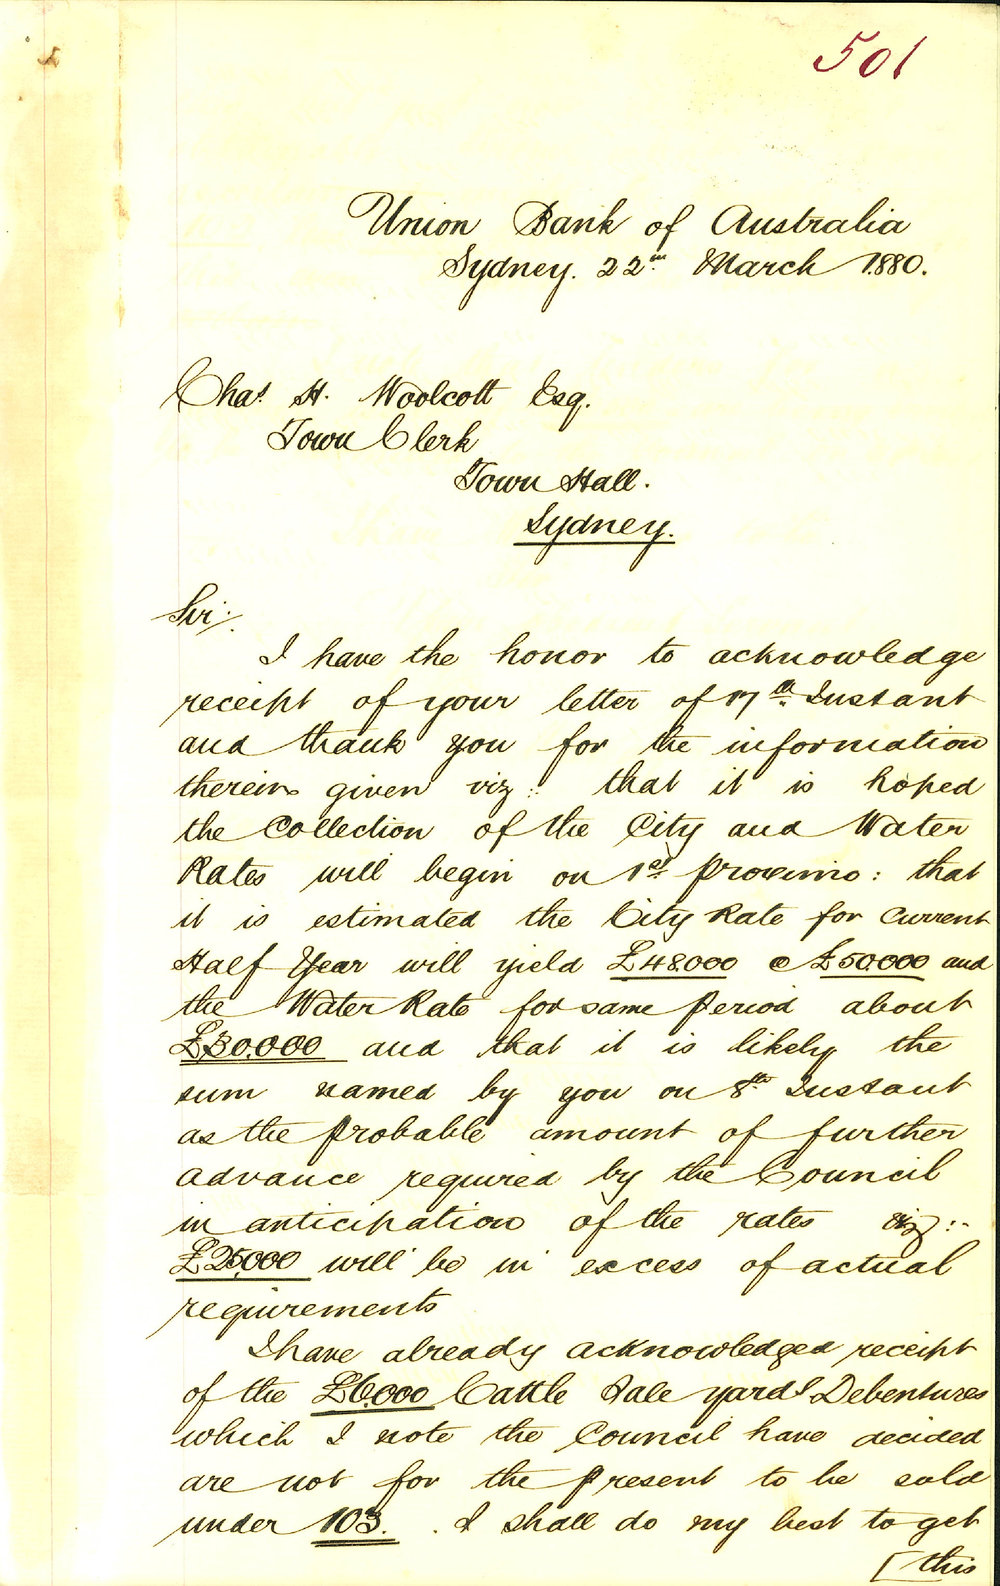 501
Union Bank of Australia
Sydney. 22nd March 1880.
Chas. H. Woolcott Esq.
Town Clerk
Town Hall.
Sydney.
Sir:
I have the honor to acknowledge
receipt of your letter of 17th Instant
and thank you for the information
therein given viz: that it is hoped
the Collection of the City and Water
Rates will begin on 1st proximo: that
it is estimated the City Rate for Current
Half Year will yield £48000 @ £50,000 and
the Water Rate for same period about
£30,000 and that it is likely the
sum named by you on 8th Instant
as the probable amount of further
advance required by the Council
in anticipation of the rates viz:-
£25,000 will be in excess of actual
requirements
I have already acknowledged receipt
of the £6,000 Cattle Sale yards Debentures
which I note the Council have decided
are not for the present to be sold
under 103. . I shall do my best to get
[this